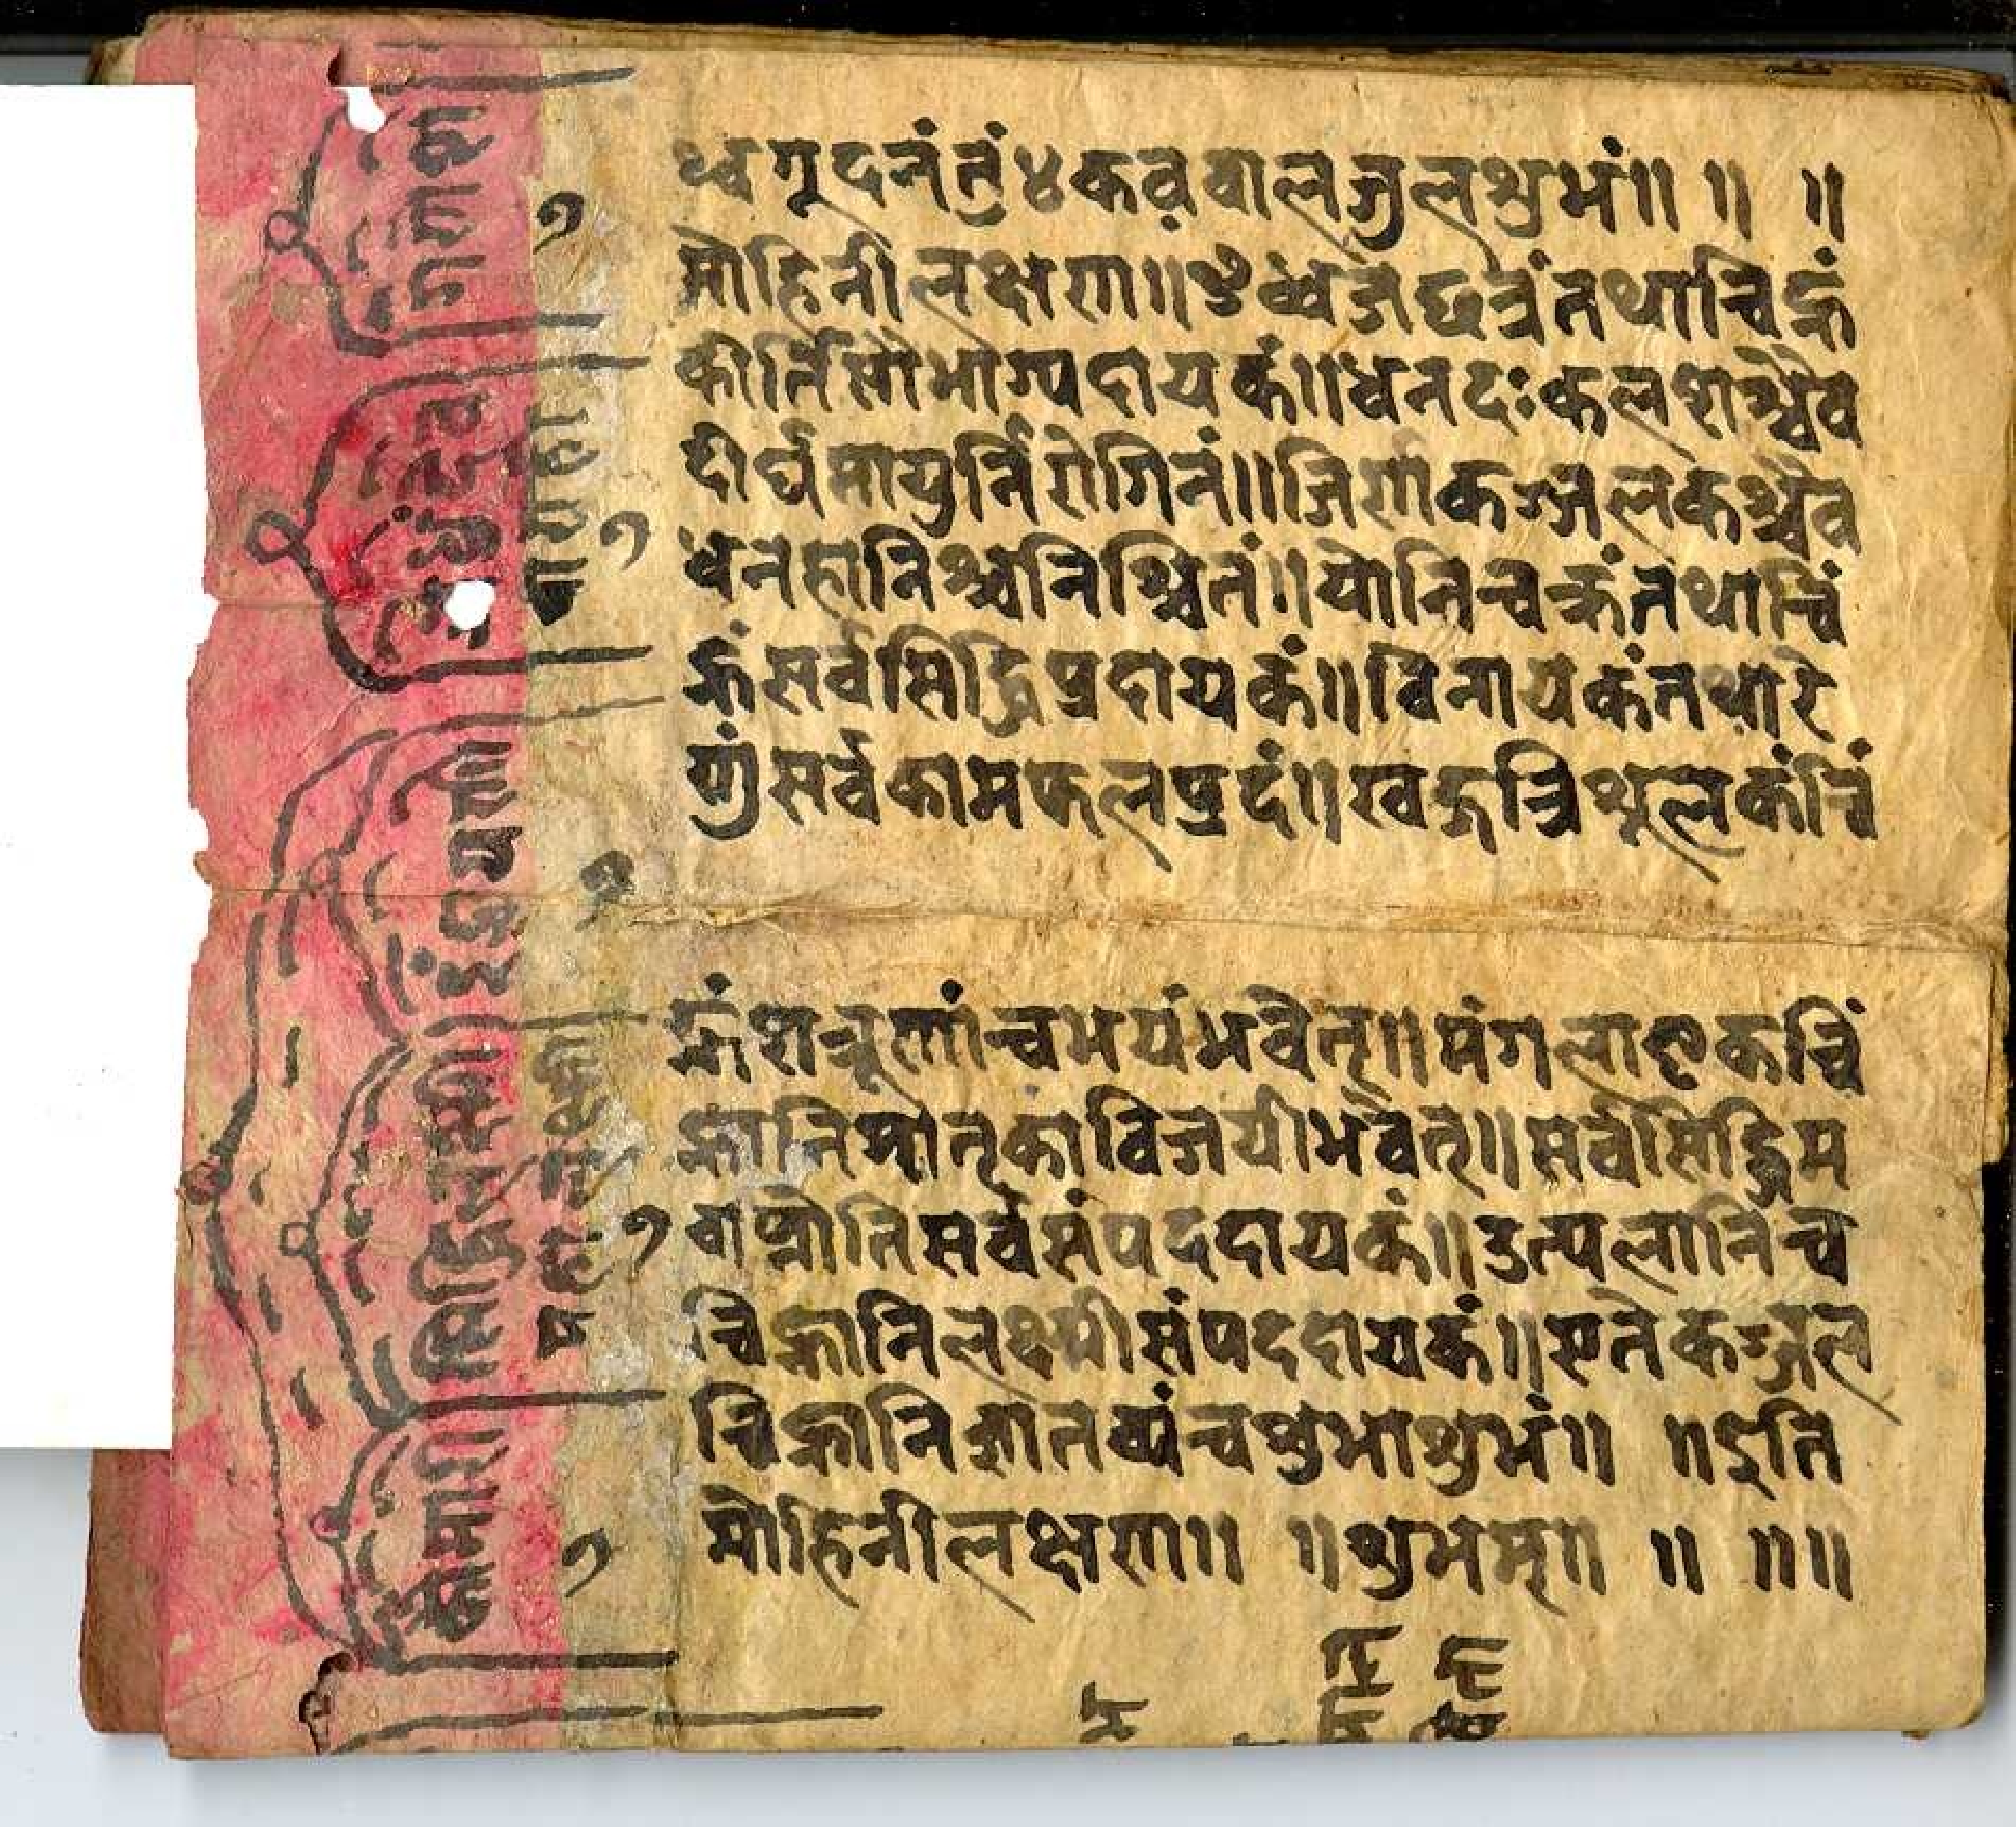 मोहिनीलक्षण॥ ध्वजछत्रंतथाचिह्नं
कीर्तिसौभाग्यदायकं॥धनदःकलशश्चैव
दीर्घमायुर्निरोगिनं॥जिर्णकज्जलकश्चैव
धनहानिश्चनिश्चितं॥योनिचक्रंतथाचिं
ह्नंसर्वसिद्धिप्रदायकं॥विनायकंतथारे
सर्वकामफलप्रदं॥खड्गत्रिशूलकंचिं
ह्नंशत्रूणांचभयंभवेत्॥मंगलाष्टकचिं
ह्नानिमातृकाविजयीभवेत्॥सर्वसिद्धिम
वाप्नोतिसर्वसंपददायकं॥उत्पलानिच
चिह्नानिलक्ष्मीसंपददायकं॥एतेकज्जल
चिह्नानिज्ञातव्यंचशुभाशुभं॥ ॥इति
मोहिनीलक्षण॥ ॥शुभम्॥ ॥ ॥॥
गणेश
१
१
इंद्रायणी
सिद्धिलक्ष्मी
१
१